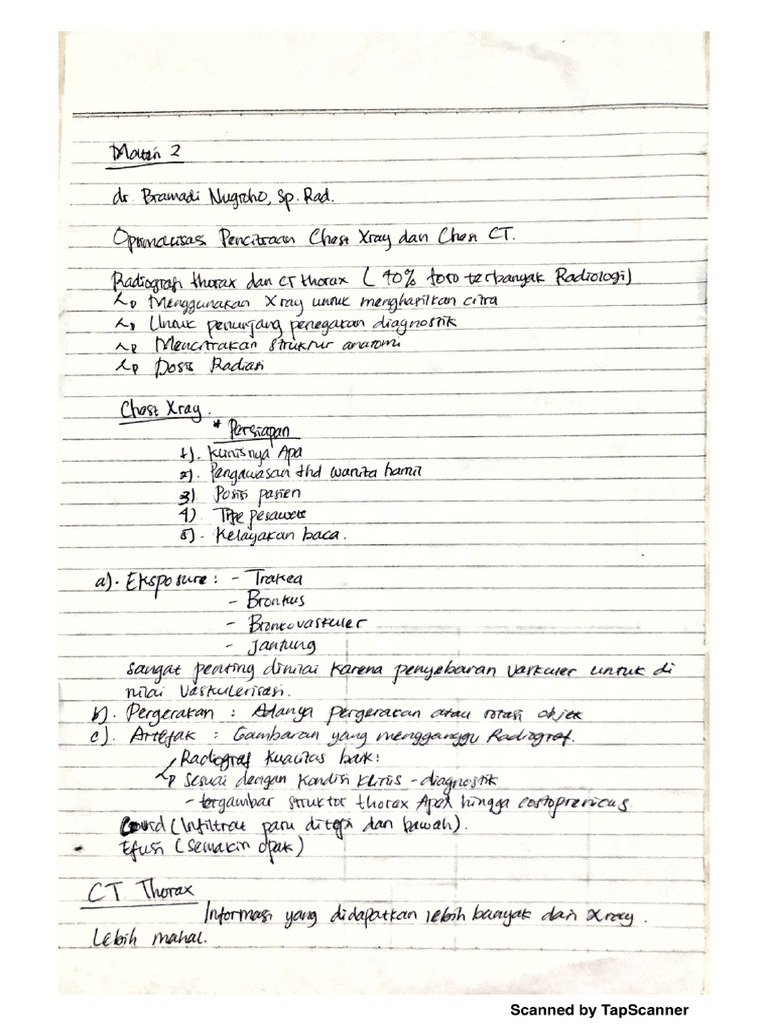 Materi 2
dr. Bramadi Nugroho, Sp. Rad.
Optimalisasi Pencitraan Chest Xray dan Chest CT.
Radiografi thorax dan CT thorax ( 40% foto terbanyak Radiologi)
↳ Menggunakan Xray untuk menghasilkan citra
↳ Untuk penunjang penegakan diagnostik
↳ Mencitrakan struktur anatomi
↳ Dosis Radiasi
Chest Xray.
* Persiapan
1). Klinisnya Apa
2). Pengawasan thd wanita hamil
3) Posisi pasien
4) Tipe pesawat
5). Kelayakan baca.
a). Eksposure : - Trakea
- Bronkus
- Bronkovaskuler
- Jantung
sangat penting dinilai karena penyebaran vaskuler untuk di
nilai vaskulerisasi.
b). Pergerakan : Adanya pergerakan atau rotasi objek
c). Artefak : Gambaran yang mengganggu Radiograf.
Radiograf kualitas baik:
↳ Sesuai dengan kondisi klinis - diagnostik
- tergambar struktur thorax Apex hingga costoprenicus
Covid (Infiltrat paru ditepi dan bawah).
Efusi (Semakin opak)
CT Thorax
Informasi yang didapatkan lebih banyak dari Xray.
Lebih mahal.
Scanned by TapScanner